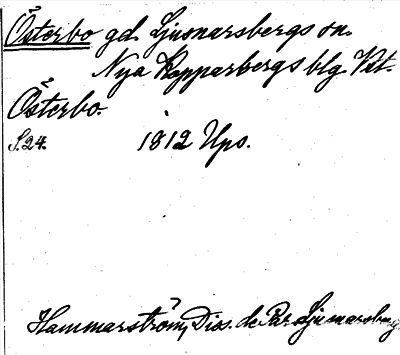 Österbo gd. Ljusnarsbergs sn.
Nya Kopparbergs blg. Vstl.
Österbo.
S. 24. 1812 Ups.
Hammarström, Diss. de Par. Ljusnarsberg